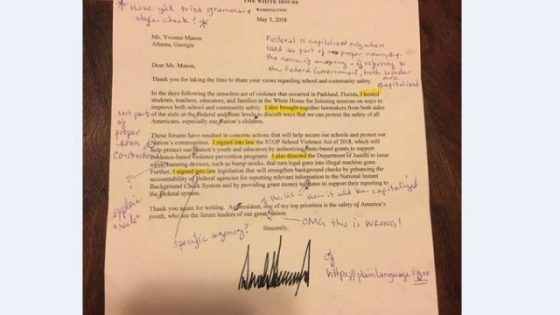 THE WHITE HOUSE
WASHINGTON
May 3, 2018
* Have y'all tried grammar &
style check? *
Ms. Yvonne Mason
Atlanta, Georgia
Federal is capitalized only when
used as part of a proper noun,
the name of agency - if referring to
the Federal Government, both words are
capitalized
Dear Ms. Mason,
Thank you for taking the time to share your views regarding school and community safety.
In the days following the senseless act of violence that occurred in Parkland, Florida, I hosted
students, teachers, educators, and families at the White House for listening sessions on ways to
improve both school and community safety. I also brought together lawmakers from both sides
of the aisle at the Federal and State levels to discuss ways that we can protect the safety of all
Americans, especially our Nation's children.
Not part
of
proper
noun
construction
These forums have resulted in concrete actions that will help secure our schools and protect our
Nation's communities. I signed into law the STOP School Violence Act of 2018, which will
help protect our Nation's youth and educators by authorizing State-based grants to support
evidence-based violence prevention programs. I also directed the Department of Justice to issue
a rule banning devices, such as bump stocks, that turn legal guns into illegal machine guns.
Further, I signed into law legislation that will strengthen background checks by enhancing the
accountability of Federal agencies for reporting relevant information to the National Instant
Background Check System and by providing grant money to States to support their reporting to
the Federal system.
explain
"rule"
Thank you again for writing. As President, one of my top priorities is the safety of America's
youth, who are the future leaders of our great Nation.
OMG this is WRONG!
Specific agency?
Sincerely,
https://plainlanguage.gov